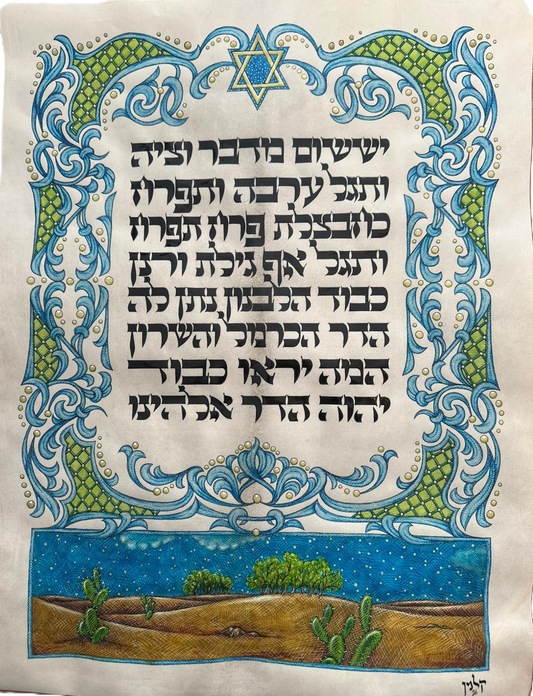 יששום מדבר וציה
ותגל ערבה ותפרח
כחבצלת פרח תפרח
ותגל אף גילת ורנן
כבוד הלבנון נתן לה
הדר הכרמל והשרון
המה יראו כבוד
יהוה הדר אלהינו